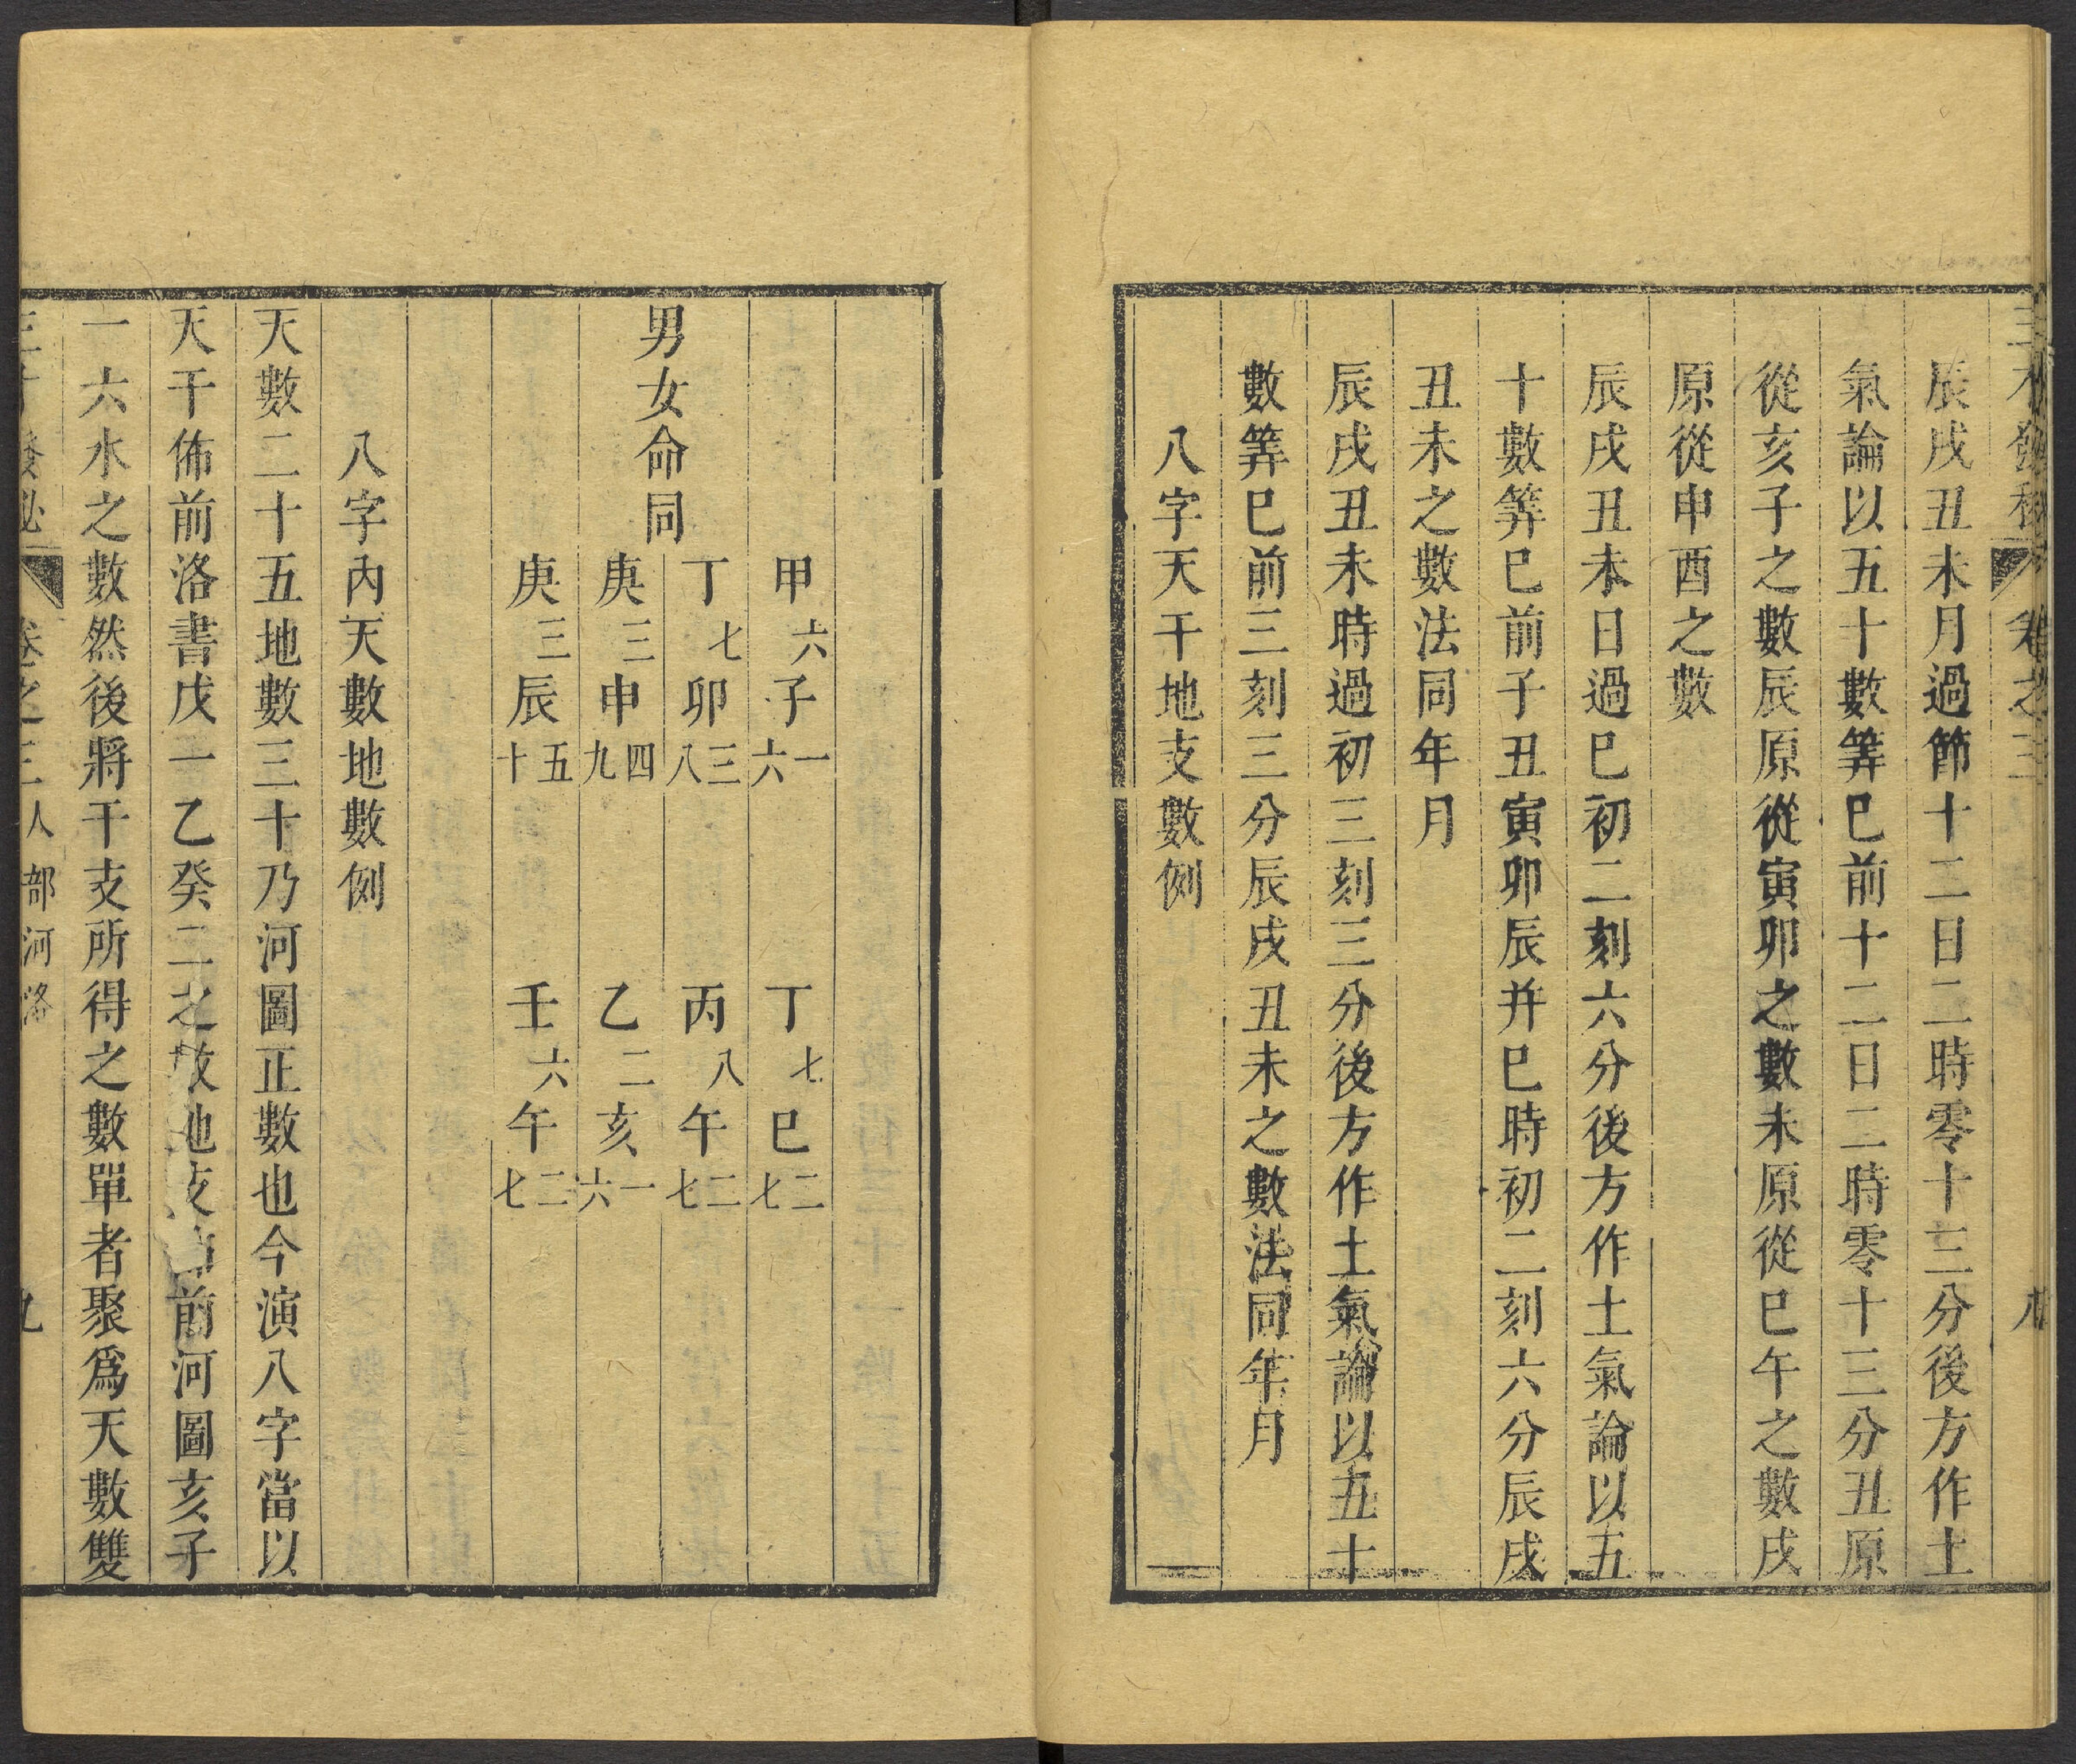 辰戌丑未月過節十二日二時零十三分後方作土
氣論以五十數筭巳前十二日二時零十三分丑原
從亥子之數辰原從寅卯之數未原從巳午之數戌
原從申酉之數
辰戌丑未日過巳初二刻六分後方作土氣論以五
十數筭巳前子丑寅卯辰并巳時初二刻六分辰戌
丑未之數法同年月
辰戌丑未時過初三刻三分後方作土氣論以五十
數筭巳前三刻三分辰戌丑未之數法同年月
八字天干地支數例
甲六子一六
丁七巳二七
丁七卯三八
丙八午二七
男女命同
庚三申四九
乙二亥一六
庚三辰五十
壬六午二七
八字內天數地數例
天數二十五地數三十乃河圖正數也今演八字當以
天干佈前洛書戊一乙癸二之數地支 前河圖亥子
一六水之數然後將干支所得之數單者聚爲天數雙
卷之三人部河洛 九